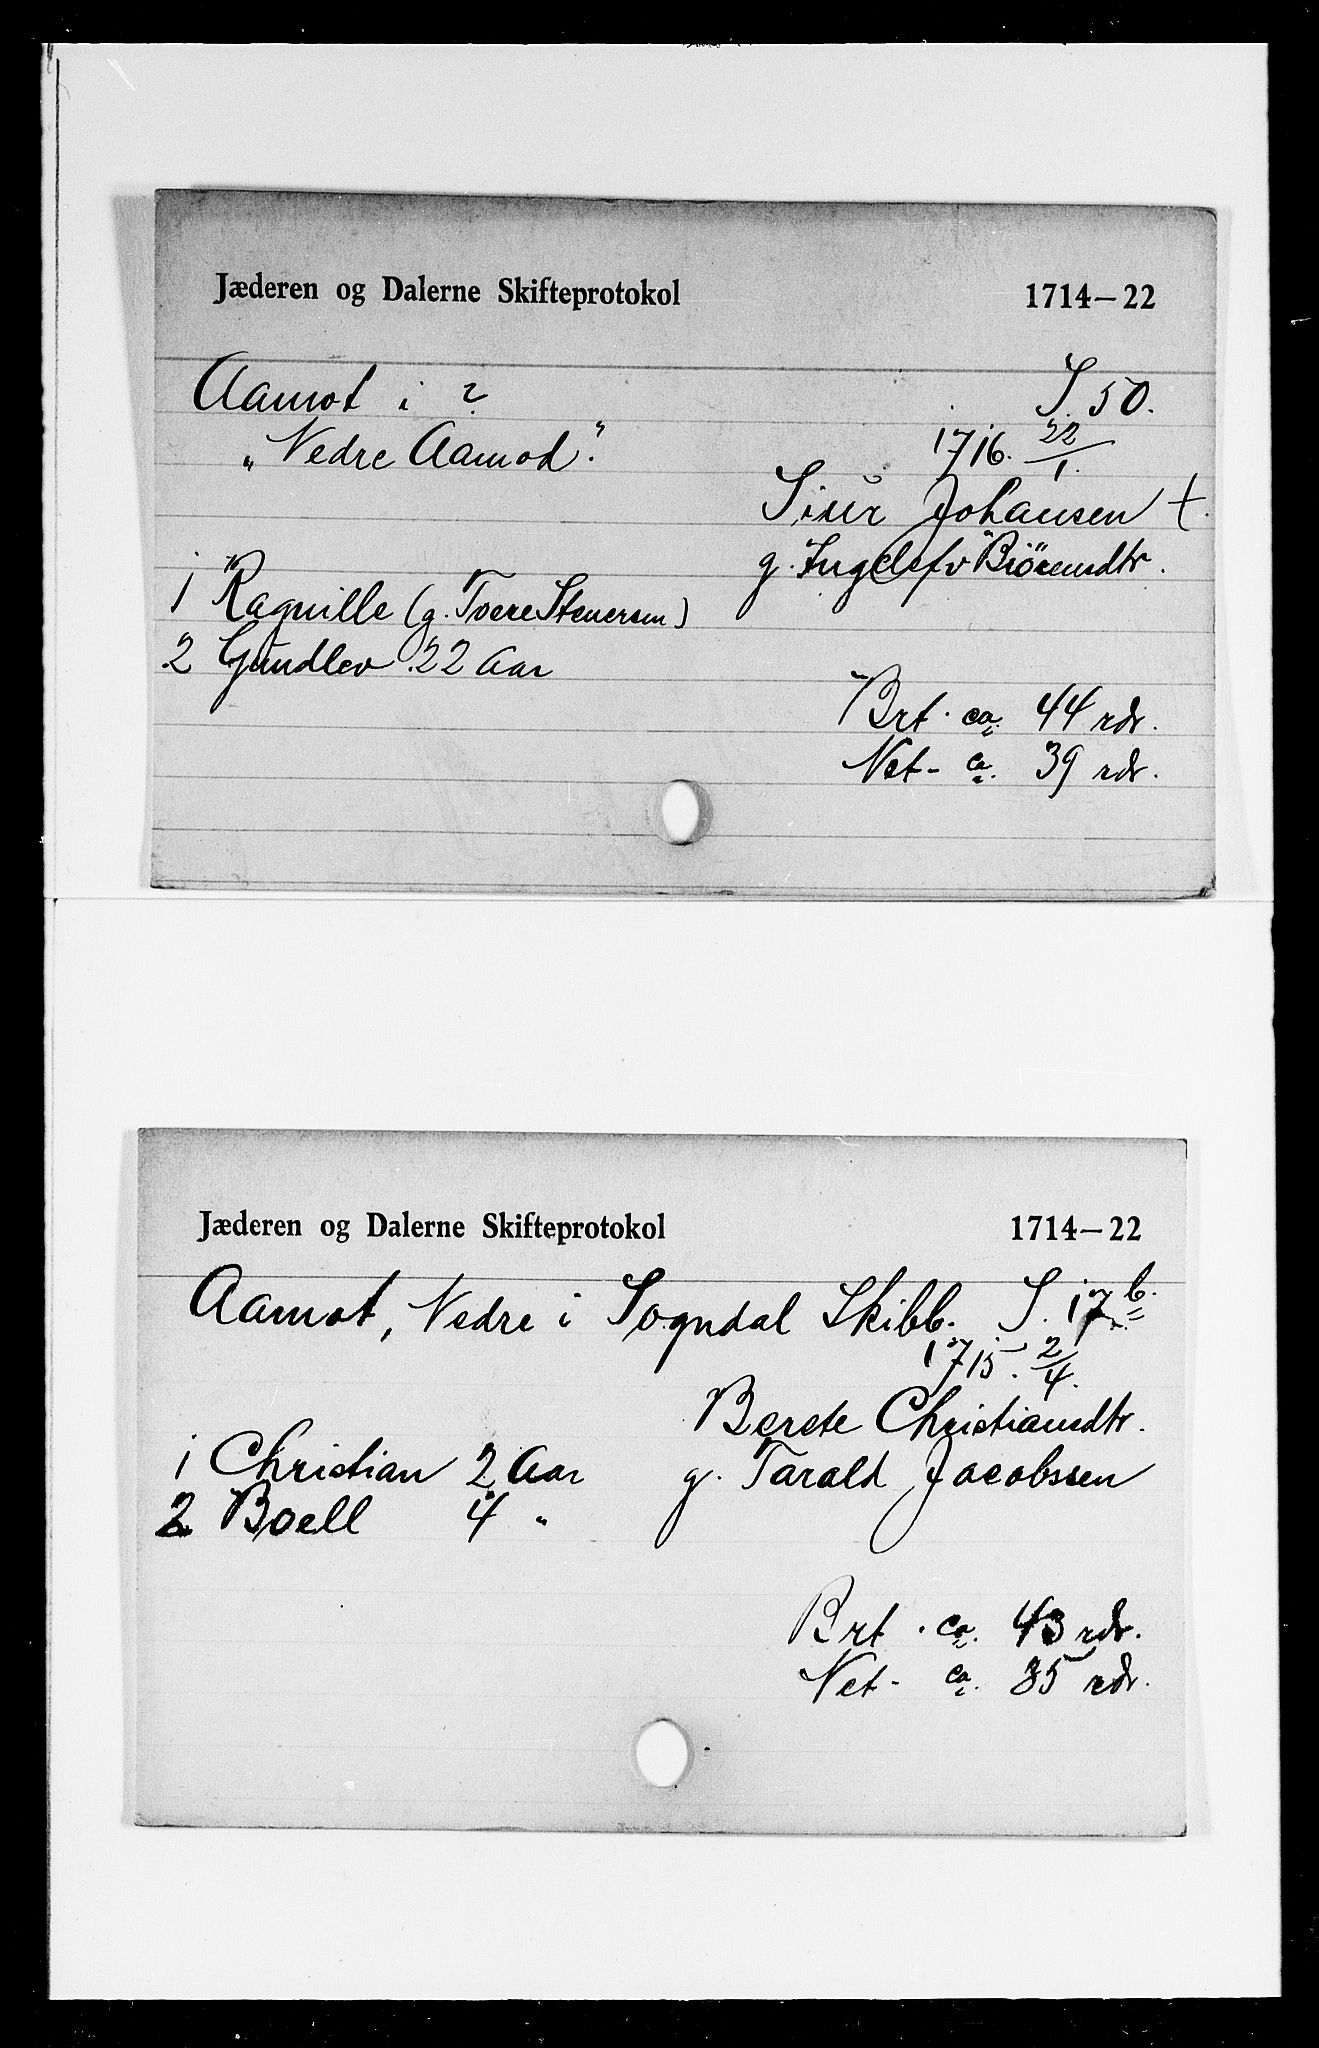 Jæderen og Dalerne Skifteprotokol 1714–22
Aamot i ? S. 50.
"Nedre Aamod." 1716. 22/1.
Siur Johansen †.
g. Ingelefv Biörensdtr.
1 Ragnille (g. Tvere Stenersen)
2 Gundlev 22 Aar
Brt. ca. 44 rdr.
Net- ca. 39 rdr.
Jæderen og Dalerne Skifteprotokol 1714–22
Aamot, Nedre i Sogndal Skibb. S. 17 b.
1715. 2/4.
Berete Christiansdtr.
1 Christian 2 Aar g. Tarald Jacobssen
2 Boell 4 "
Brt. ca. 43 rdr.
Net- ca. 35 rdr.